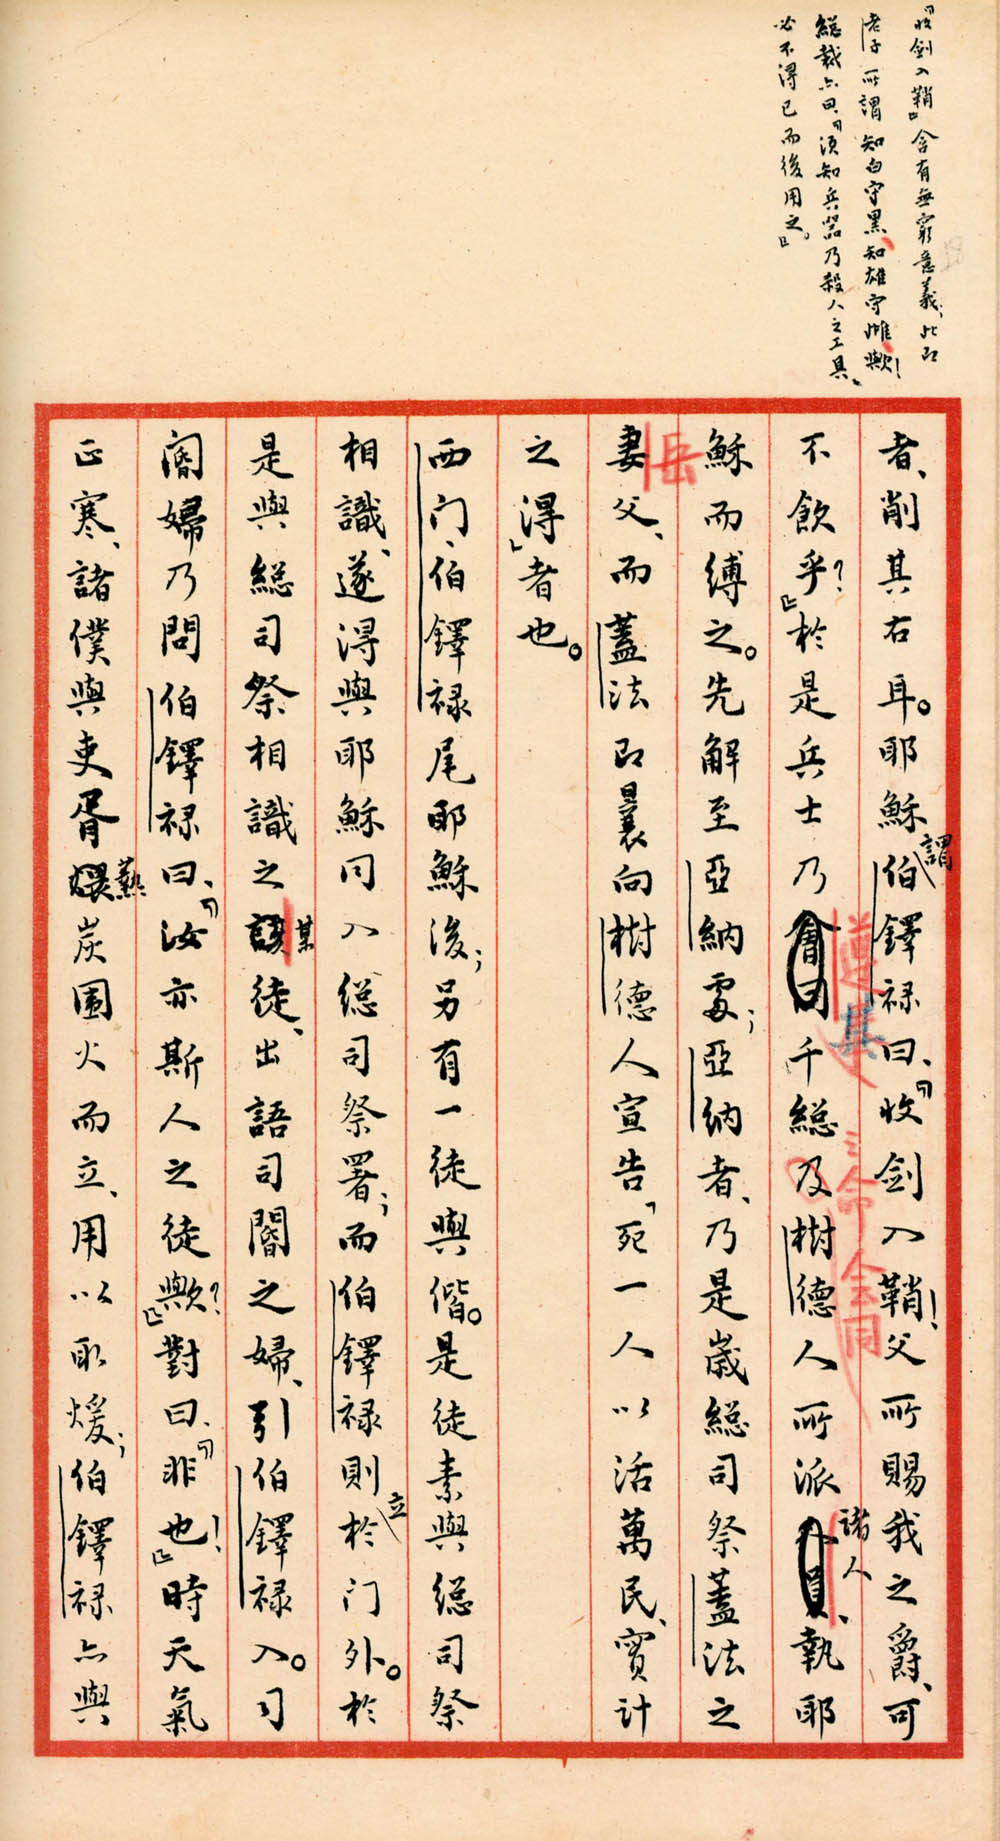 『收劍入鞘』含有無窮意義，此即
老子所謂知白守黑、知雄守雌歟！
總裁亦曰，『須知兵器乃殺人之工具，
必不得已而後用之。』
者、削其右耳。耶穌謂伯鐸祿曰、『收劍入鞘！父所賜我之爵、可
不飲乎？』於是兵士乃會同千總及樹德人所派諸人、執耶
遵其命会同
穌而縛之。先解至亞納處；亞納者、乃是歲總司祭蓋法之
岳
妻父、而蓋法即曩向樹德人宣告、『死一人以活萬民、實計
之得』者也。
西门、伯鐸祿尾耶穌後；另有一徒與偕。是徒素與總司祭
相識、遂得與耶穌同入總司祭署；而伯鐸祿則立於门外。於
是與總司祭相識之某徒、出語司閽之婦、引伯鐸祿入。司
閽婦乃問伯鐸祿曰、『汝亦斯人之徒歟？』對曰、『非也！』時天氣
正寒、諸僕與吏胥爇炭圍火而立、用以取煖；伯鐸祿亦與